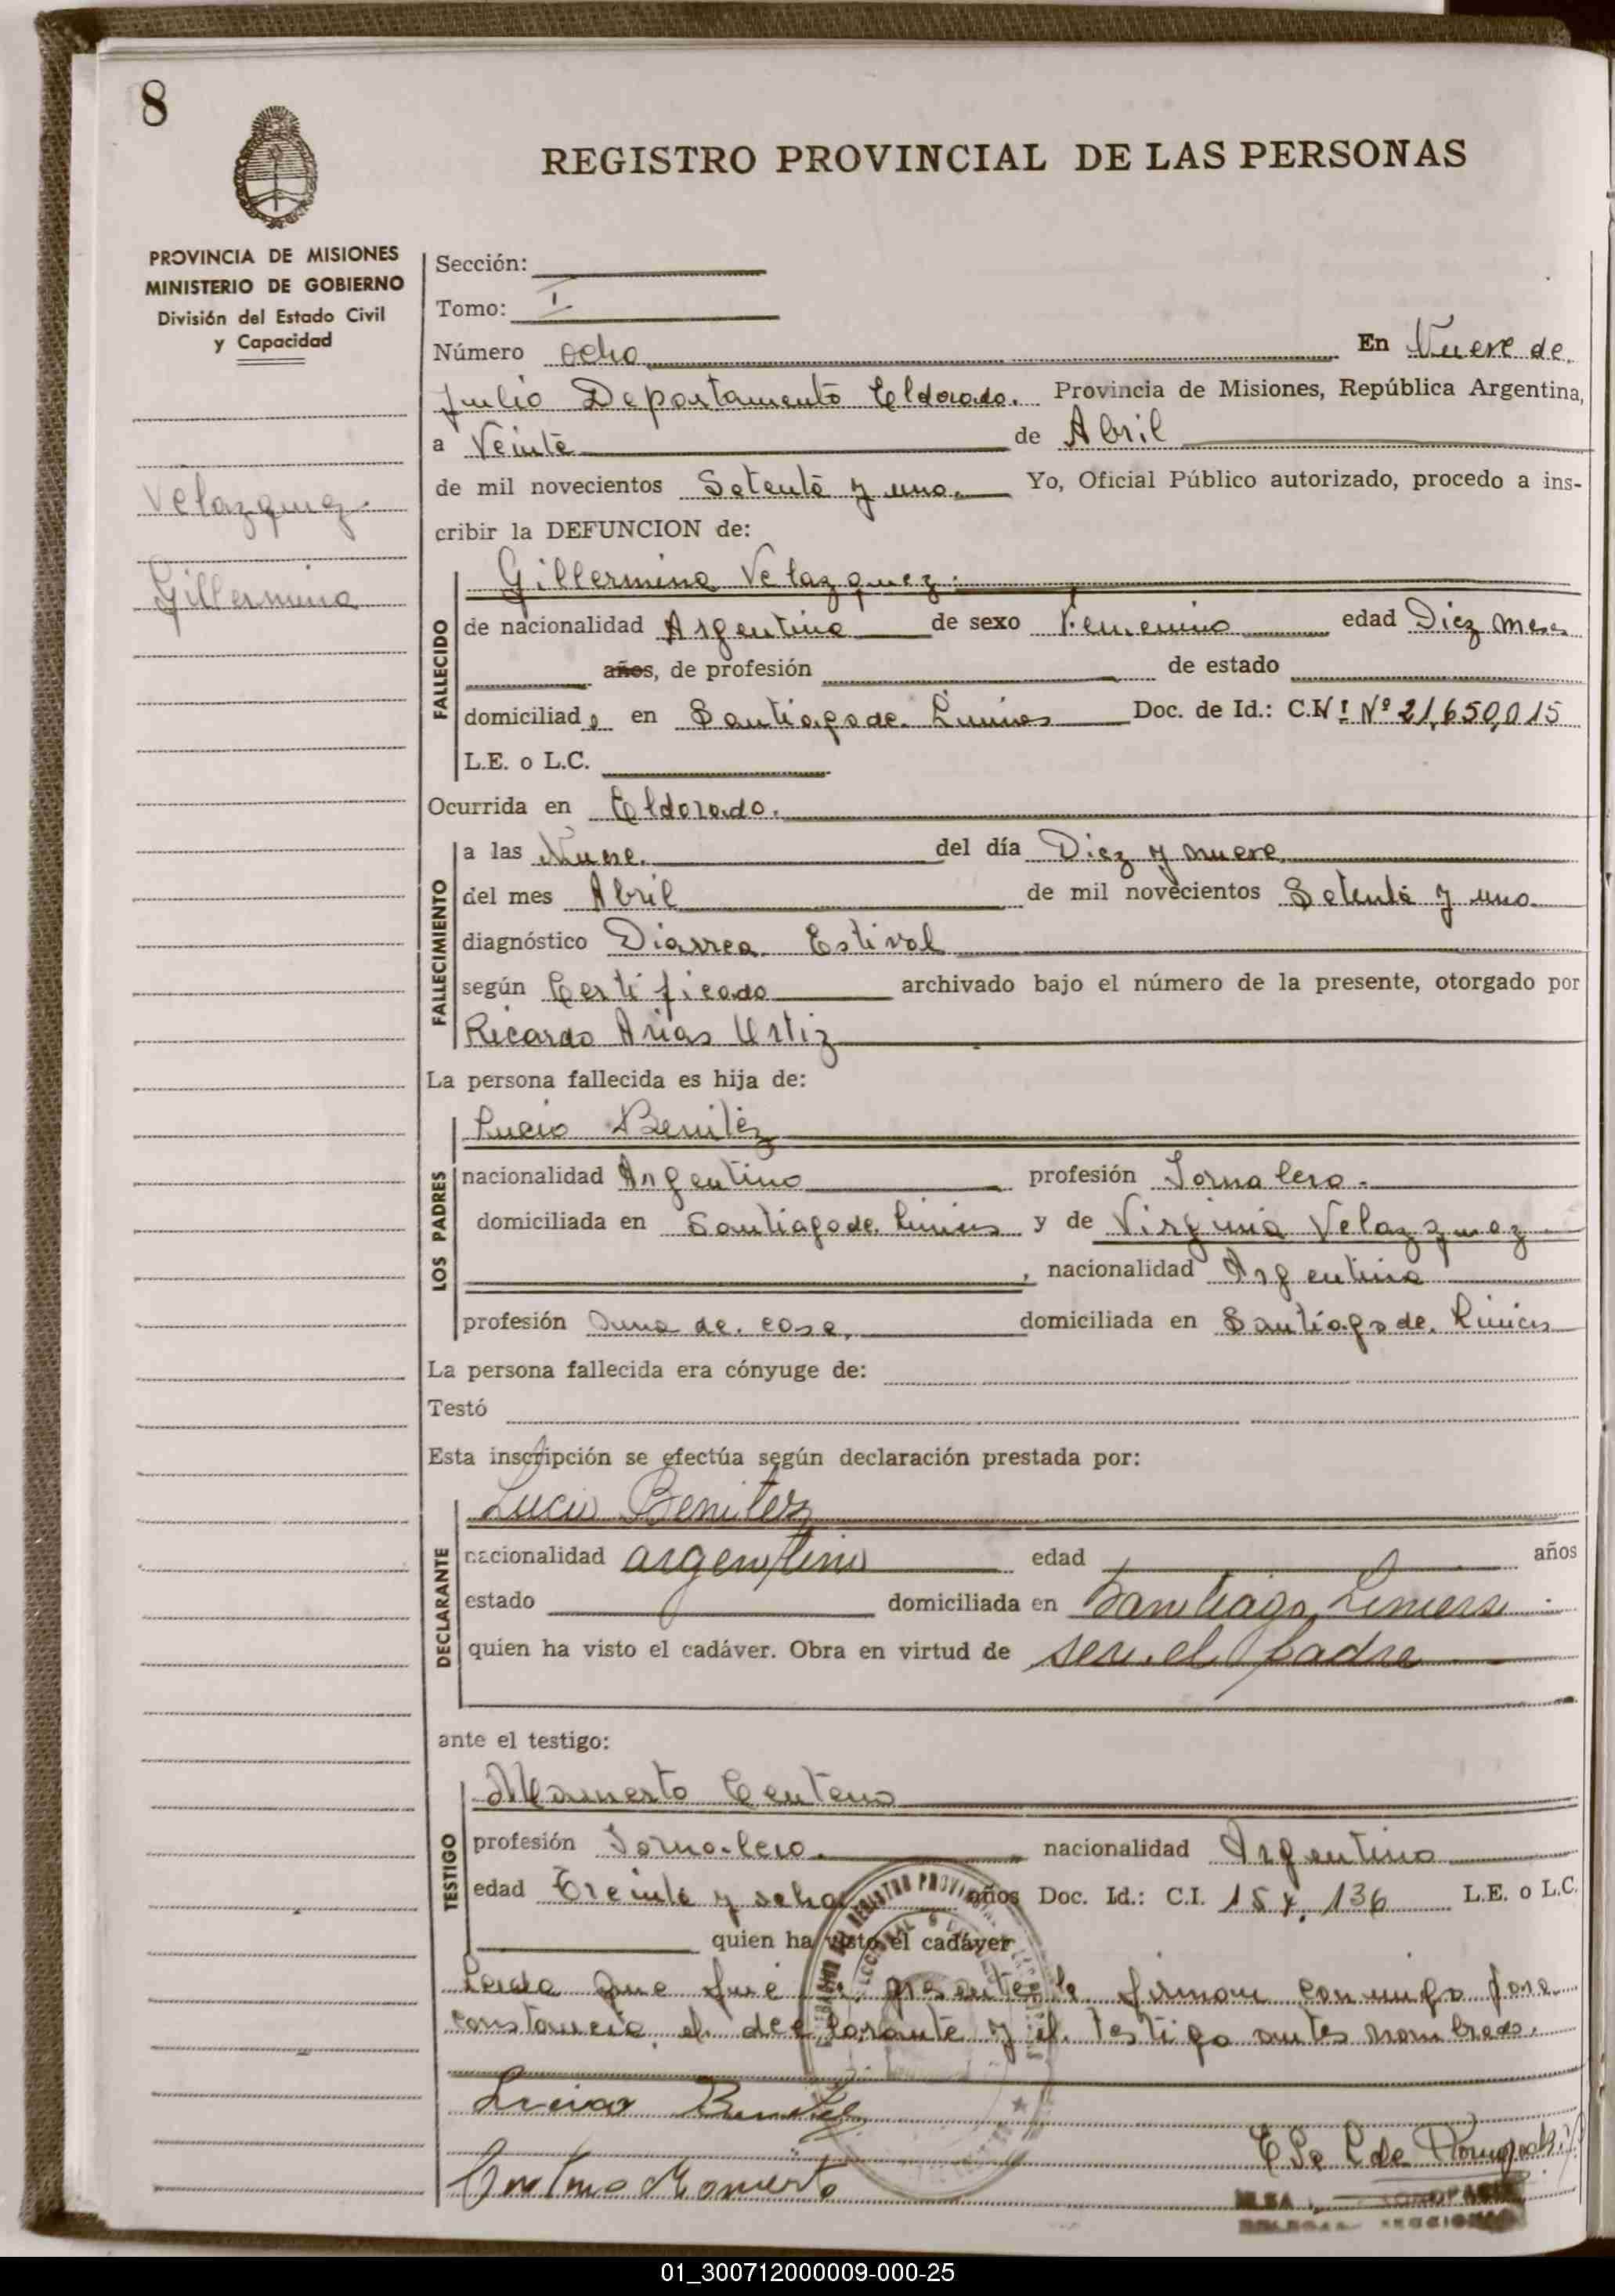 8
REGISTRO PROVINCIAL DE LAS PERSONAS
PROVINCIA DE MISIONES
MINISTERIO DE GOBIERNO
División del Estado Civil
y Capacidad
Velazquez
Gillermina
Sección:
Tomo: I
Número ocho En Nueve de
Julio Departamento Eldorado. Provincia de Misiones, República Argentina,
a Veinte de Abril
de mil novecientos Setenta y uno. Yo, Oficial Público autorizado, procedo a ins-
cribir la DEFUNCION de:
Gillermina Velazquez.
FALLECIDO
de nacionalidad Argentina de sexo Femenino edad Diez meses
años, de profesión de estado
domiciliado en Santiago de Liniers Doc. de Id.: C.N I Nº 21,650,015
L.E. o L.C.
Ocurrida en Eldorado.
FALLECIMIENTO
a las Nueve. del día Diez y nueve
del mes Abril de mil novecientos Setenta y uno
diagnóstico Diarrea Estival
según Certificado archivado bajo el número de la presente, otorgado por
Ricardo Arias Urtiz
La persona fallecida es hija de:
LOS PADRES
Lucio Benitez
nacionalidad Argentino profesión Jornalero.
domiciliada en Santiago de Liniers y de Virginia Velazquez
, nacionalidad Argentina
profesión Ama de casa, domiciliada en Santiago de Liniers
La persona fallecida era cónyuge de:
Testó
Esta inscripción se efectúa según declaración prestada por:
DECLARANTE
Lucio Benitez
nacionalidad argentino edad años
estado domiciliada en Santiago Liniers
quien ha visto el cadáver. Obra en virtud de ser el padre
ante el testigo:
TESTIGO
Mamerto Centeno
profesión Jornalero. nacionalidad Argentino
edad Treinta y ocho años Doc. Id.: C.I. 154.136 L.E. o L.C.
quien ha visto el cadáver
Leida que fué la presente la firman conmigo para
constancia el declarante y el testigo antes nombrado.
Lucio Benitez
Centeno Mamerto
01_300712000009-000-25